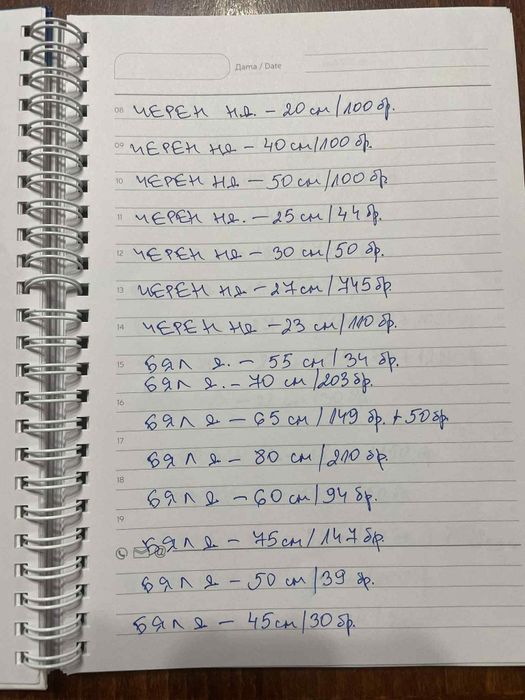 Дата / Date
08 ЧЕРЕН НД. – 20 см/100 бр.
09 ЧЕРЕН НД – 40 см/100 бр.
10 ЧЕРЕН НД – 50 см/100 бр
11 ЧЕРЕН НД. – 25 см/44 бр.
12 ЧЕРЕН НД – 30 см/50 бр.
13 ЧЕРЕН НД – 27 см/745 бр
14 ЧЕРЕН НД – 23 см/110 бр.
15 БЯЛ Д. – 55 см/34 бр.
БЯЛ Д. – 70 см/203 бр.
16
БЯЛ Д – 65 см/149 бр. + 50 бр.
17
БЯЛ Д – 80 см/210 бр.
18
БЯЛ Д – 60 см/94 бр.
19
БЯЛ Д – 75 см/147 бр.
БЯЛ Д – 50 см/39 бр.
БЯЛ Д – 45 см/30 бр.